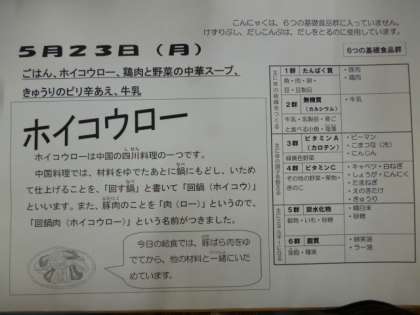 こんにゃくは、6つの基礎食品群に入っていません。
けずりぶし、だしこんぶは、だしをとるのに使用しています。
5月23日（月）
6つの基礎食品群
ごはん、ホイコウロー、鶏肉と野菜の中華スープ、
きゅうりのピリ辛あえ、牛乳
ホイコウロー
ホイコウローは中国の四川料理の一つです。
中国料理では、材料をゆでたあとに鍋にもどし、いため
て仕上げることを、「回す鍋」と書いて「回鍋（ホイコウ）」
といいます。また、豚肉のことを「肉（ロー）」というので、
「回鍋肉（ホイコウロー）」という名前がつきました。
今日の給食では、豚ばら肉をゆ
でてから、他の材料と一緒にいた
めています。
1群 たんぱく質
・豚肉
・鶏肉
2群 無機質
（カルシウム）
牛乳・乳製品・骨ご
と食べる小魚・海藻
・牛乳
3群 ビタミンA
（カロテン）
緑黄色野菜
・ピーマン
・こまつな
・にんじん
4群 ビタミンC
その他の野菜・果物・
きのこ
・キャベツ・白ねぎ
・しょうが・にんにく
・たまねぎ
・えのきたけ
・きゅうり
5群 炭水化物
穀物・いも・砂糖
・精白米
・砂糖
6群 脂質
油脂・種実
・ラー油